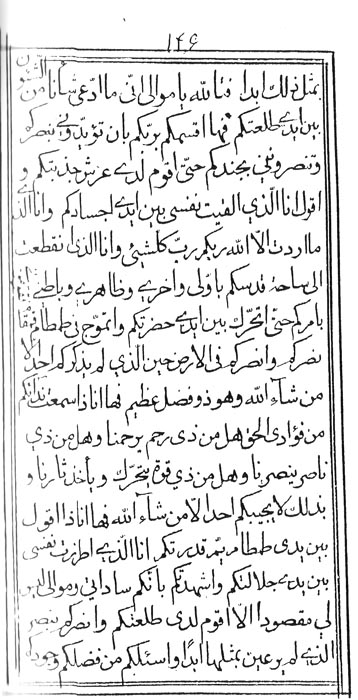 ١٤٦
بمثل ذلك ابدا فتا لله يا موالى انّى ما ادّعى شأنا من الشئون
بين ايدى طلعتكم فها اقسمكم بربّكم بان تؤيدونى بنصركم
و تنصرونى بجندكم حتّى اقوم لدى عرش جذبتكم و
اقول انا الّذى القيت نفسى بين ايدى اجسادكم و انا الذى
ما اردت الّا الله ربكم ربّ كلشيئى و انا الذى انقطعت
الى ساحة قدسكم باوّلى و اخرى و ظاهرى و باطنى
بامركم حتى اتحرّك بين ايدى حضرتكم و اتموّج فى طمطام
نصركم و انصركم فى الارض حين الذى لم يذكركم احد الا
من شآء الله و هو ذو فضل عظيم فها انا ذا سمعت ندائكم
من فؤادى الحق هل من ذى رحم يرحمنا و هل من ذى
ناصر ينصرنا و هل من ذي قوة يتحرّك و يأخذ ثارنا و
بذلك لا يجيبكم احد الّا من شآء الله فها انا ذا اقول
بين يدى طمطام يمّ قدرتكم انا الّذى اطرزت نفسى
بين يدى جلالتكم و اشهدتكم بانكم ساداتى و موالى ليس
لى مقصودا الّا اقوم لدى طلعتكم و انصركم بنصر
الذى لم ير عين بمثلها ابدًا و اسئلكم من فضلكم وجودكم